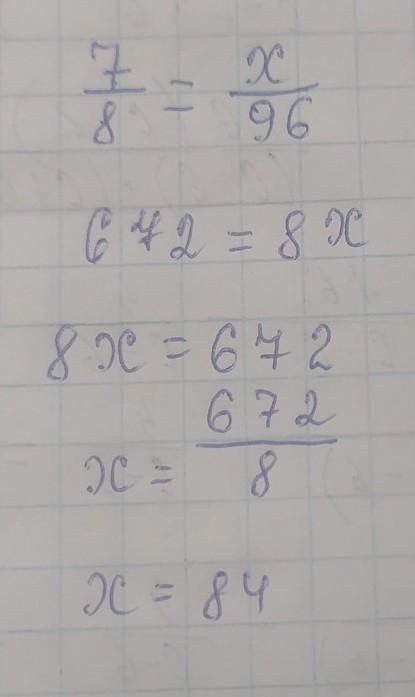 7/8 = x/96
672 = 8x
8x = 672
x = 672/8
x = 84